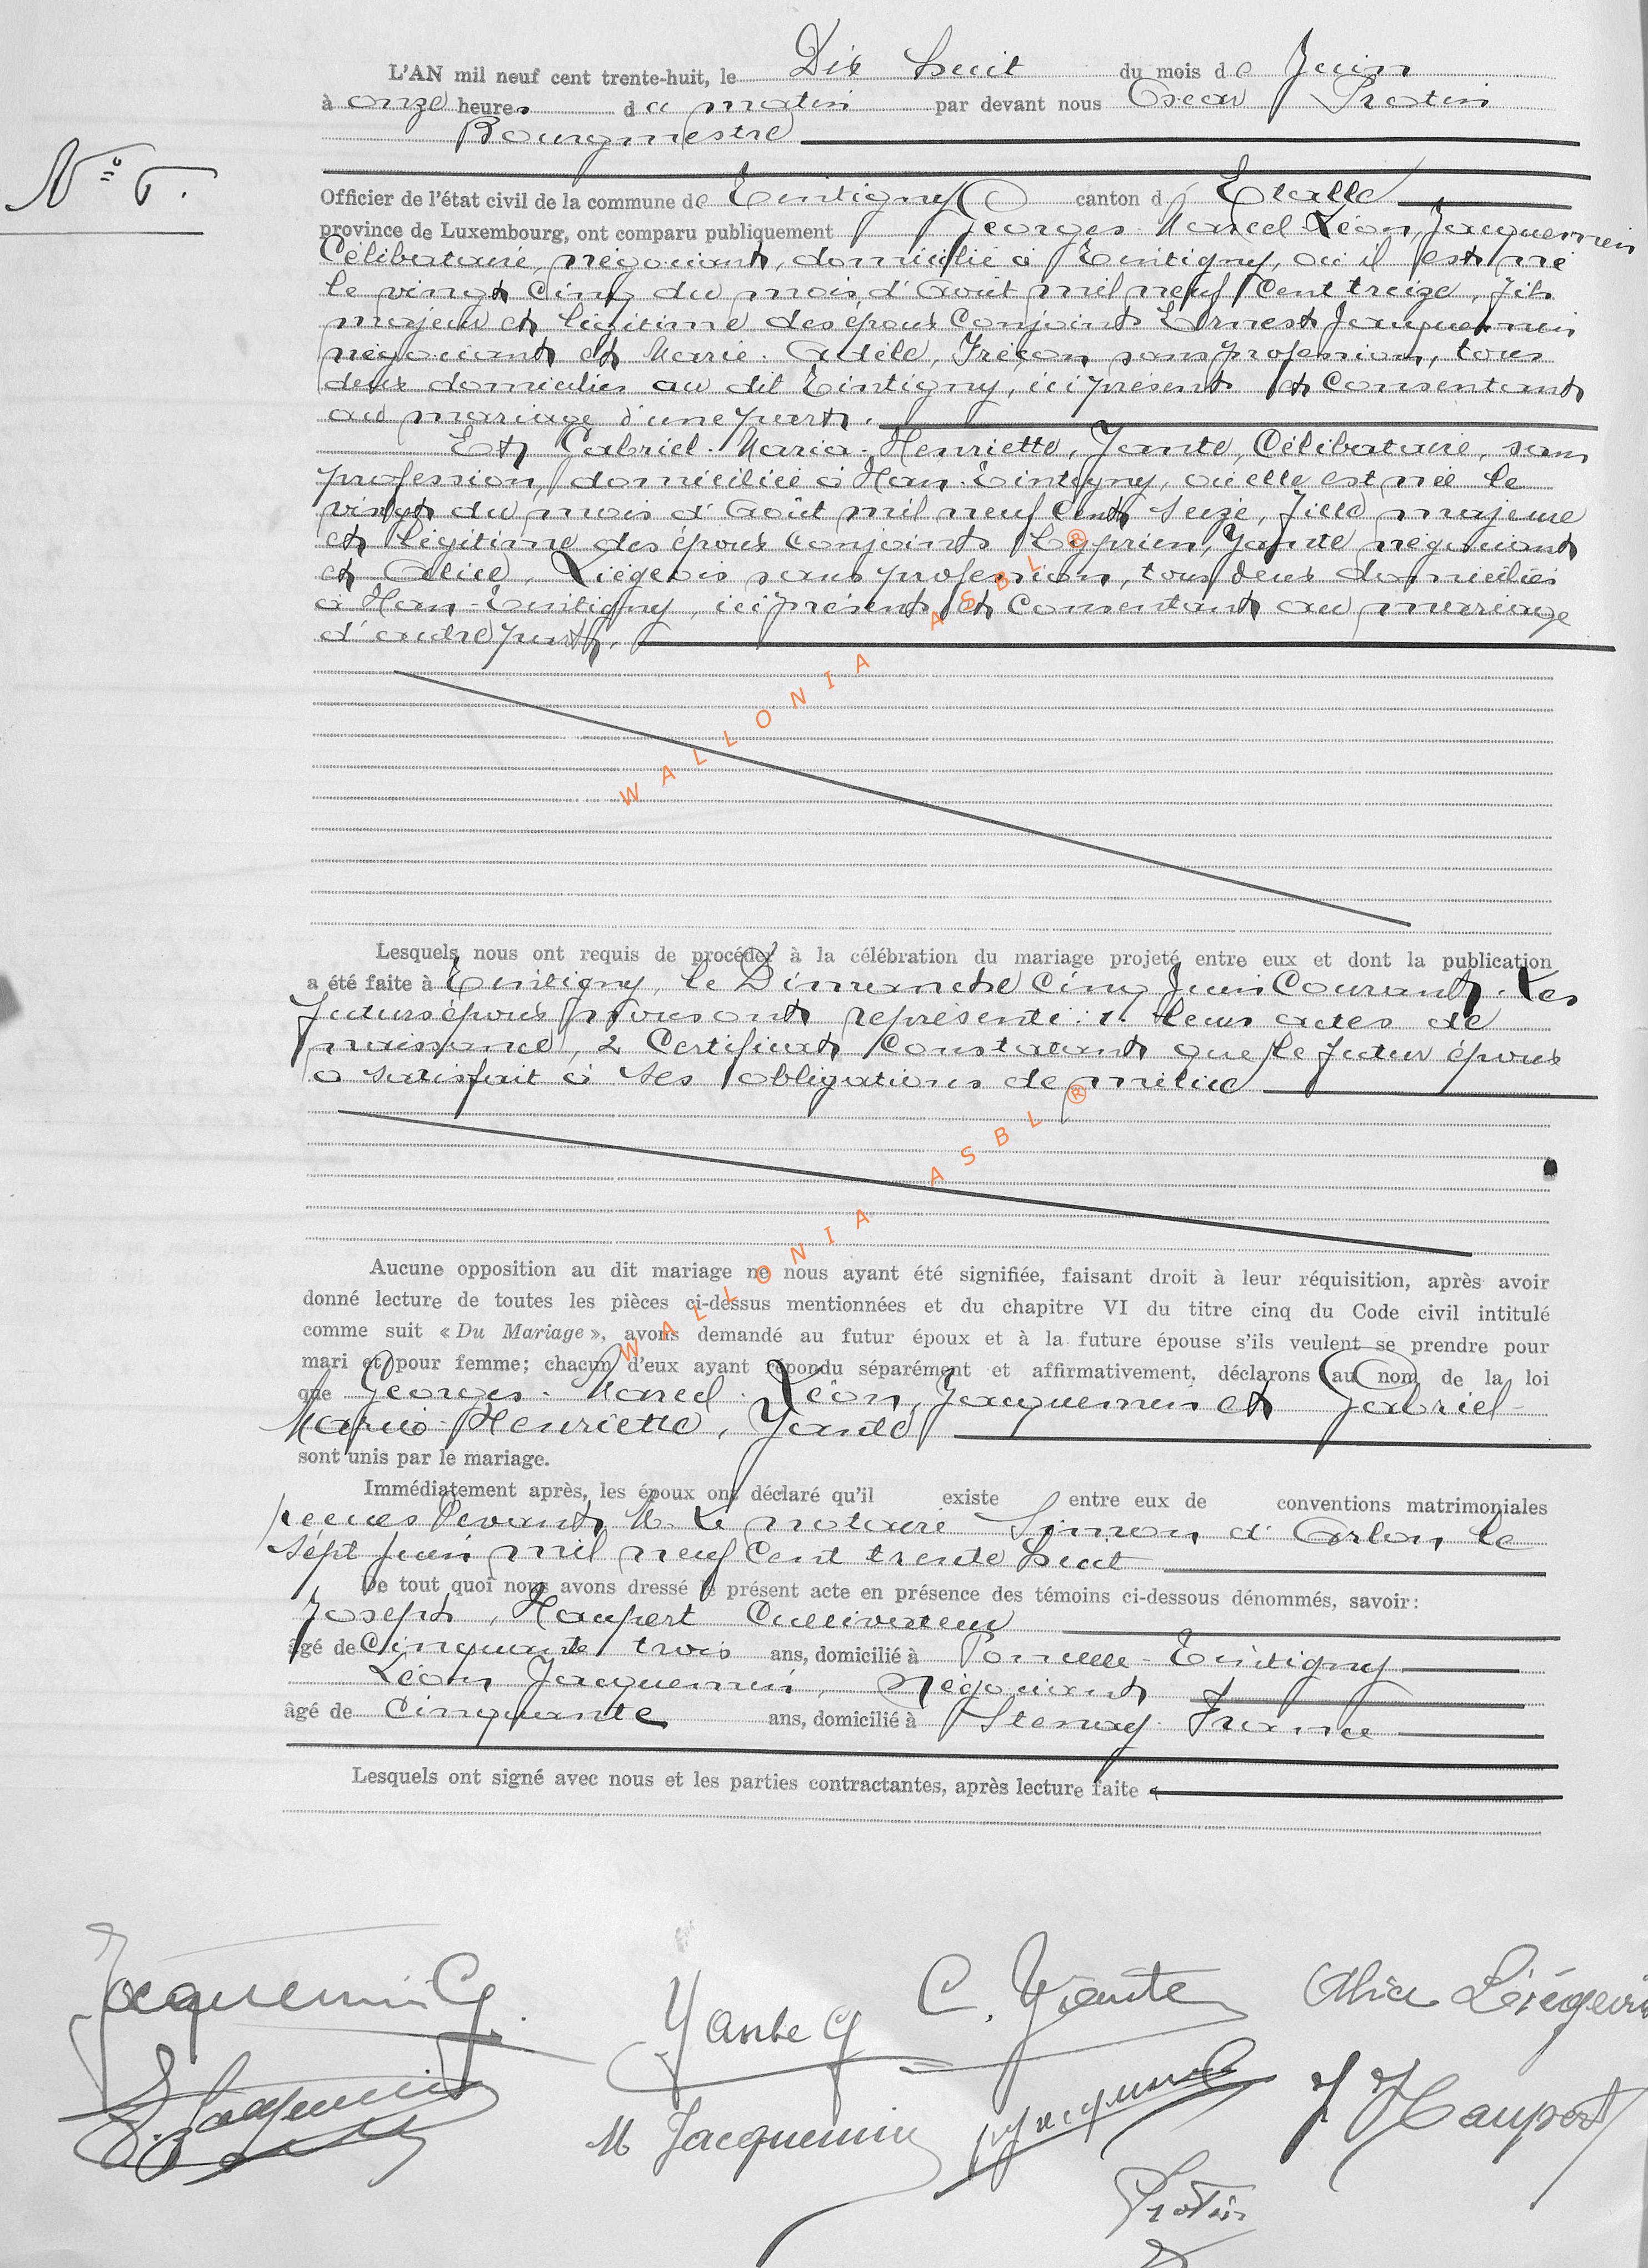 L'AN mil neuf cent trente-huit, le Dix huit du mois de Juin
à onze heures du matin par devant nous Oscar Protin
Bourgmestre
N° 6.
Officier de l'état civil de la commune de Tintigny canton d' Etalle
province de Luxembourg, ont comparu publiquement Georges-Marcel-Léon, Jacquemin
Célibataire, négociant, domicilié à Tintigny, où il est né
le vingt cinq du mois d'Août mil neuf cent treize, fils
majeur et légitime des époux conjoints Ernest Jacquemin
négociant et Marie-Adèle, sans profession, tous
deux domiciliés au dit Tintigny, ici présents et consentants
au mariage d'une part.
Et Gabriel-Maria-Henriette, Yante, Célibataire, sans
profession, domiciliée à Han-Tintigny, où elle est née le
vingt du mois d'Août mil neuf cent seize, fille majeure
et légitime des époux conjoints Cyprien, Yante négociant
et Alice, Liégeois sans profession, tous deux domiciliés
à Han-Tintigny, ici présents et consentants au mariage
d'autre part.
WALLONIA ASBL ®
Lesquels nous ont requis de procéder à la célébration du mariage projeté entre eux et dont la publication
a été faite à Tintigny, le Dimanche cinq Juin Courant. Les
futurs époux nous ont représenté: 1. leurs actes de
naissance, 2 Certificats constatant que le futur époux
a satisfait à ses obligations de milice
WALLONIA ASBL ®
Aucune opposition au dit mariage ne nous ayant été signifiée, faisant droit à leur réquisition, après avoir
donné lecture de toutes les pièces ci-dessus mentionnées et du chapitre VI du titre cinq du Code civil intitulé
comme suit « Du Mariage », avons demandé au futur époux et à la future épouse s'ils veulent se prendre pour
mari et pour femme; chacun d'eux ayant répondu séparément et affirmativement, déclarons au nom de la loi
que Georges-Marcel-Léon, Jacquemin et Gabriel-
Maria-Henriette, Yante
sont unis par le mariage.
Immédiatement après, les époux ont déclaré qu'il existe entre eux de conventions matrimoniales
recues Devant M. Le notaire Simon d'Arlon le
sept juin mil neuf cent trente huit
De tout quoi nous avons dressé le présent acte en présence des témoins ci-dessous dénommés, savoir:
Joseph, Haupert Cultivateur
âgé de Cinquante trois ans, domicilié à Poncelle-Tintigny
Léon Jacquemin, Négociant
âgé de Cinquante ans, domicilié à Stenay-France
Lesquels ont signé avec nous et les parties contractantes, après lecture faite
Jacquemin G.
Yante G
C. Yante
Alice Liégeois
E. Jacquemin
M Jacquemin
J Haupert
Protin